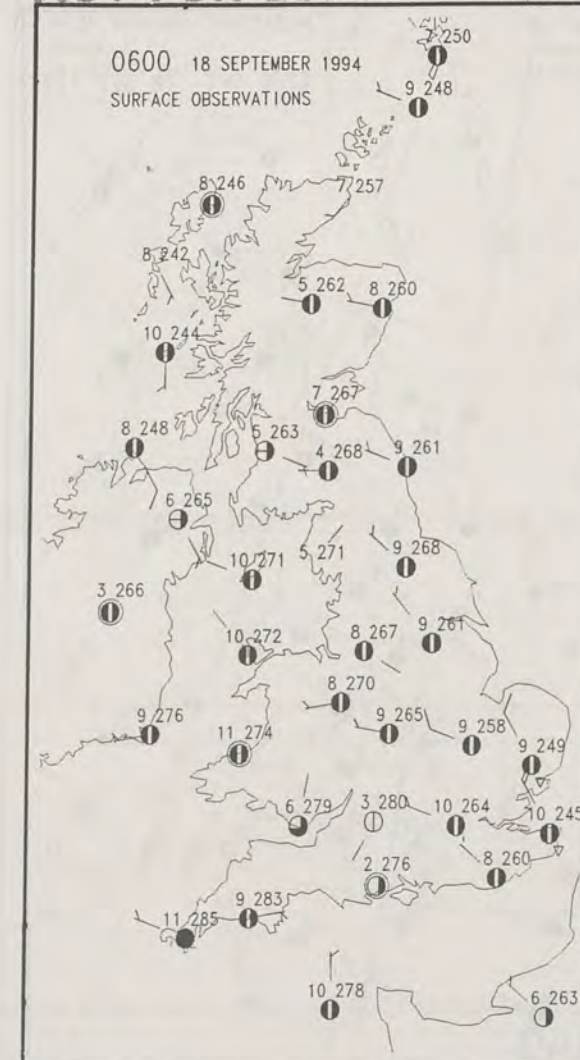 0600 18 SEPTEMBER 1994
SURFACE OBSERVATIONS
7 250
9 248
8 246
7 257
8 242
5 262
8 260
10 244
7 267
8 248
5 263
4 268
9 261
6 265
10 271
5 271
9 268
3 266
10 272
8 267
9 261
8 270
9 276
11 274
9 265
9 258
9 249
6 279
3 280
10 264
10 245
2 276
8 260
9 283
11 285
10 278
6 263